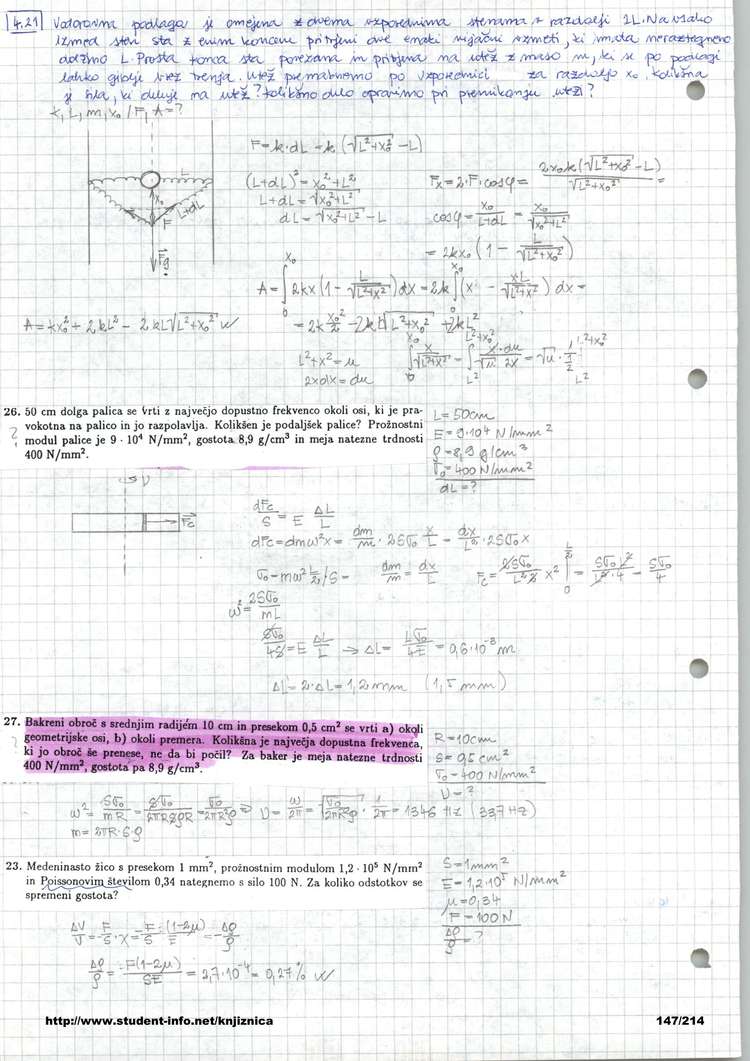 4.21 Vodoravna podlaga je omejena z dvema vzporednima stenama v razdalji 2L. Na vsako
izmed sten sta z enim koncem pritrjeni dve enaki vijačni vzmeti, ki imata neraztegneno
dolžino L. Prosta konca sta povezana in pritrjena na utež z maso m, ki se po podlagi
lahko giblje brez trenja. Utež premaknemo po vzporednici za razdaljo x₀. Kolikšna
je sila, ki deluje na utež? Kolikšno delo opravimo pri premikanju uteži?
k, L, m, x₀ / F, A = ?
F = k·dL = k(√(L²+x₀²) - L)
(L+dL)² = x₀² + L²
L+dL = √(x₀²+L²)
dL = √(x₀²+L²) - L
Fₓ = 2·F·cosφ = 2x₀k(√(L²+x₀²) - L) / √(L²+x₀²) =
cosφ = x₀/(L+dL) = x₀/√(x₀²+L²)
= 2kx₀(1 - L/√(L²+x₀²))
L
x₀
L+dL
F
Fg
A = ∫₀^x₀ 2kx(1 - L/√(L²+x²))dx = 2k∫₀^x₀(x - xL/√(L²+x²))dx =
A = kx₀² + 2kL² - 2kL√(L²+x₀²)
= 2k x₀²/2 - 2kL√(L²+x₀²) + 2kL²
L²+x² = u
2xdx = du
∫₀^x₀ x/√(L²+x²) = ∫_L²^L²+x₀² x·du/(√u 2x) = √u · 1/½ |_L²^L²+x₀²
26. 50 cm dolga palica se vrti z največjo dopustno frekvenco okoli osi, ki je pra-
vokotna na palico in jo razpolavlja. Kolikšen je podaljšek palice? Prožnostni
modul palice je 9 · 10⁴ N/mm², gostota 8,9 g/cm³ in meja natezne trdnosti
400 N/mm².
?
L = 50cm
E = 9·10⁴ N/mm²
ρ = 8,9 g/cm³
σ₀ = 400 N/mm²
dL = ?
ν
Fc
dFc/S = E ΔL/L
dFc = dmω²x = dm/m · 2Sσ₀ x/L = dx/L² · 2Sσ₀x
σ₀ = mω² L/2 /S
dm/m = dx/L
Fc = 2Sσ₀/(L²2) x² |₀^L/2 = Sσ₀L²/(L²·4) = Sσ₀/4
ω² = 2Sσ₀/(mL)
Sσ₀/(4S) = E ΔL/L → ΔL = Lσ₀/(4E) = 0,6·10⁻³ m
ΔL' = 2·ΔL = 1,2mm (1,5 mm)
27. Bakreni obroč s srednjim radijem 10 cm in presekom 0,5 cm² se vrti a) okoli
geometrijske osi, b) okoli premera. Kolikšna je največja dopustna frekvenca,
ki jo obroč še prenese, ne da bi počil? Za baker je meja natezne trdnosti
400 N/mm², gostota pa 8,9 g/cm³.
?
R = 10cm
S = 0,5 cm²
σ₀ = 400 N/mm²
ν = ?
ω² = Sσ₀/(mR) = Sσ₀/(2πRSρR) = σ₀/(2πR²ρ) ⇒ ν = ω/2π = √(σ₀/(2πR²ρ)) · 1/2π = 134,6 Hz (337 Hz)
m = 2πR·S·ρ
23. Medeninasto žico s presekom 1 mm², prožnostnim modulom 1,2 · 10⁵ N/mm²
in Poissonovim številom 0,34 nategnemo s silo 100 N. Za koliko odstotkov se
spremeni gostota?
S = 1mm²
E = 1,2·10⁵ N/mm²
μ = 0,34
F = 100N
Δρ/ρ = ?
ΔV/V = F/S · χ = F/S · (1-2μ)/E = -Δρ/ρ
Δρ/ρ = -F(1-2μ)/(SE) = 2,7·10⁻⁴ = 0,27%
http://www.student-info.net/knjiznica
147/214